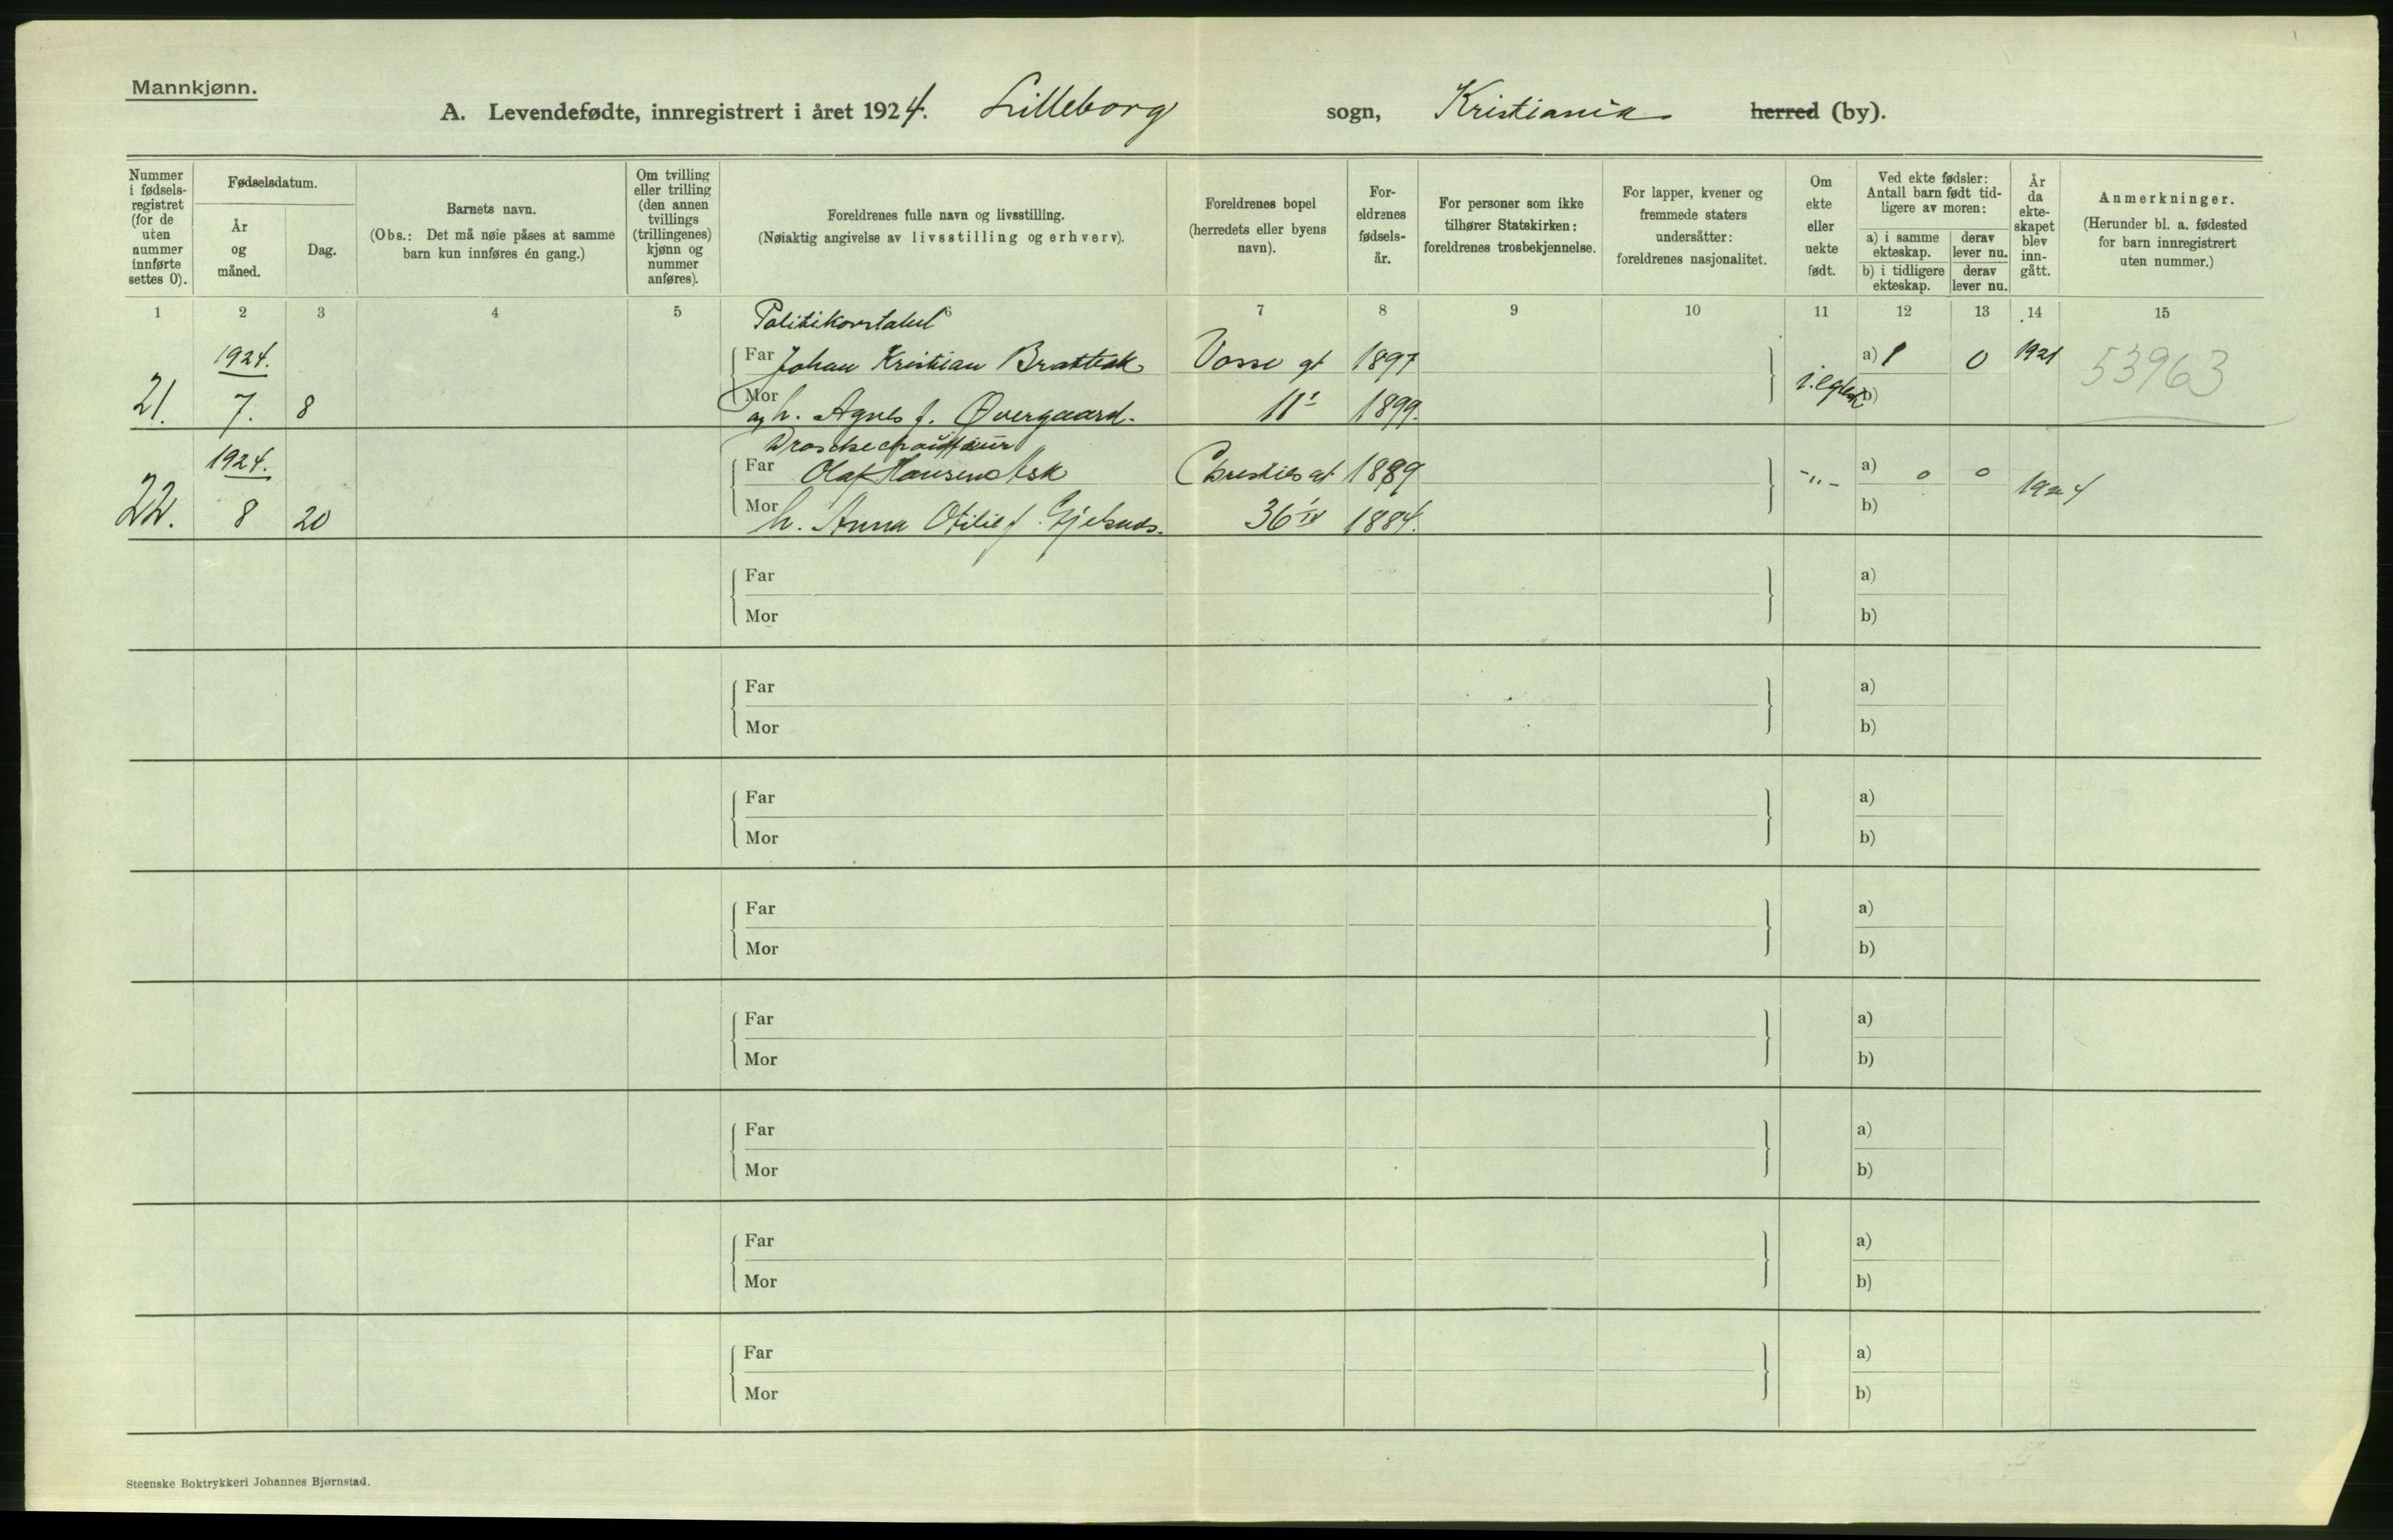 Mannkjønn.
A. Levendefødte, innregistrert i året 1924. Lilleborg sogn, Kristiania herred (by).
Nummer i fødsels-registret (for de uten nummer innførte settes 0).
Fødselsdatum.
År og måned.
Dag.
Barnets navn.
(Obs.: Det må nøie påses at samme barn kun innføres én gang.)
Om tvilling eller trilling (den annen tvillings (trillingenes) kjønn og nummer anføres).
Foreldrenes fulle navn og livsstilling.
(Nøiaktig angivelse av livsstilling og erhverv).
Foreldrenes bopel (herredets eller byens navn).
For-eldrenes fødsels-år.
For personer som ikke tilhører Statskirken: foreldrenes trosbekjennelse.
For lapper, kvener og fremmede staters undersåtter: foreldrenes nasjonalitet.
Om ekte eller uekte født.
Ved ekte fødsler: Antall barn født tid-ligere av moren:
a) i samme ekteskap.
derav lever nu.
b) i tidligere ekteskap.
derav lever nu.
År da ekte-skapet blev inn-gått.
Anmerkninger.
(Herunder bl. a. fødested for barn innregistrert uten nummer.)
1 2 3 4 5 6 7 8 9 10 11 12 13 14 15
Politikonstabel
1924. Far Johan Kristian Vosse gt 1897 a) 1 0 1921 53963
21. 7. 8 Mor og h. Agnes f. Øvergaard. 11 1899. b)
Droschechauffeur
1924. Far Olaf Hansen Ask gt 1889 -"- a) 0 0 1924
22. 8 20 Mor h. Anna Otilie f. 36 IV 1884. b)
Far a)
Mor b)
Far a)
Mor b)
Far a)
Mor b)
Far a)
Mor b)
Far a)
Mor b)
Far a)
Mor b)
Far a)
Mor b)
Far a)
Mor b)
Steenske Boktrykkeri Johannes Bjørnstad.